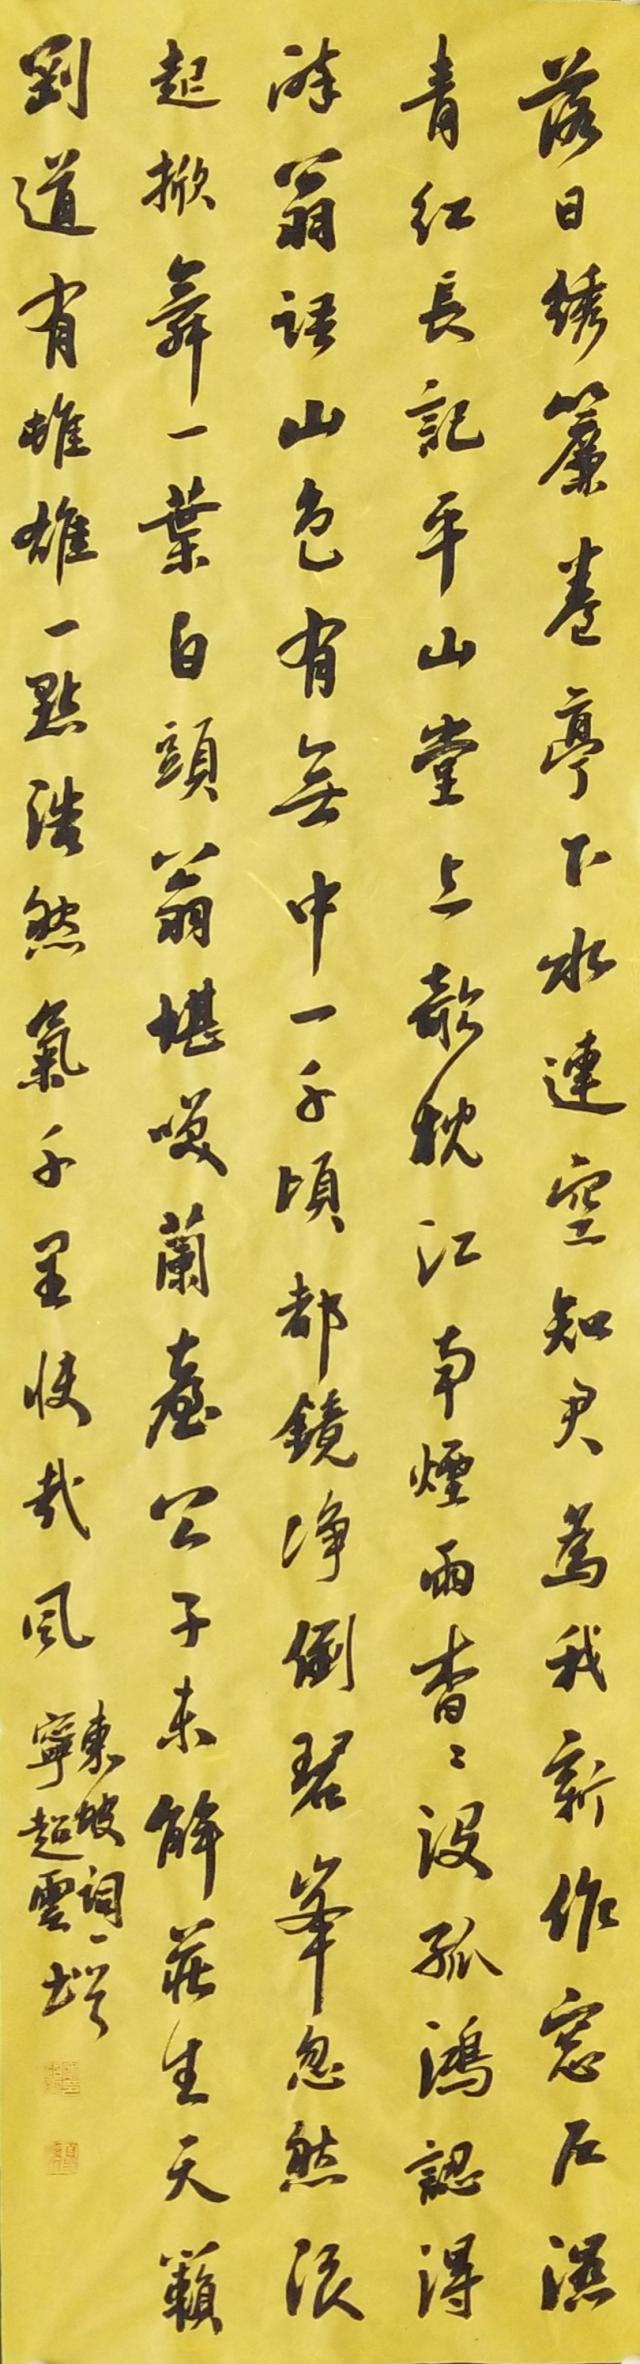 落日綉簾卷亭下水連空知君為我新作窓户濕
青紅長記平山堂上欹枕江南煙雨杳々没孤鴻認得
醉翁語山色有無中一千頃都鏡净倒碧峯忽然浪
起掀舞一葉白頭翁堪笑蘭臺公子未解莊生天籟
剛道有雌雄一點浩然氣千里快哉風
東坡詞一首
寧超雲書